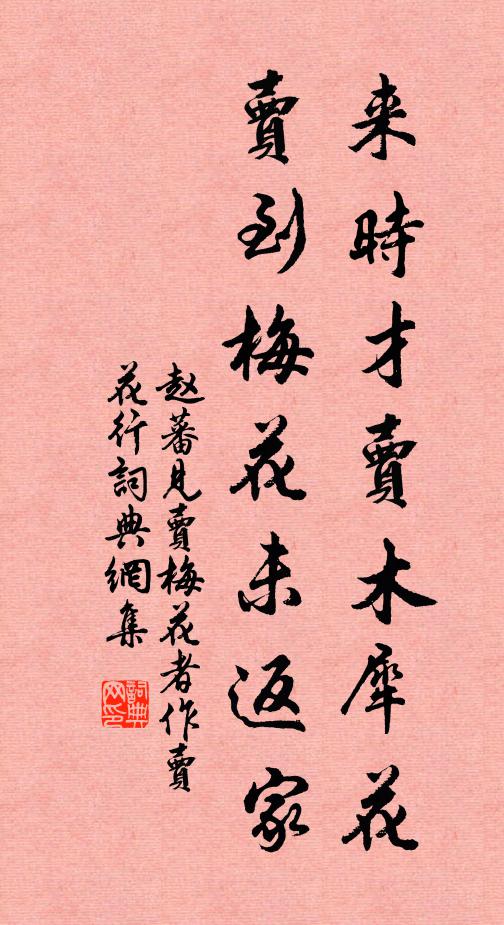 来時才賣木犀花
賣到梅花未返家
赵蕃見賣梅花者作賣
花行詞典網集
詞典
网印